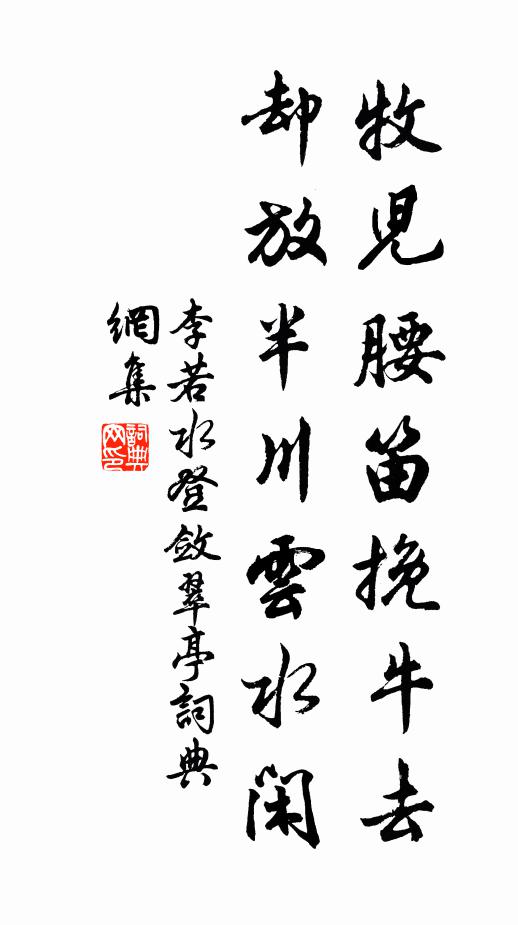 牧兒腰笛挽牛去
却放半川雲水閑
李若水登斂翠亭詞典
網集
詞典網印